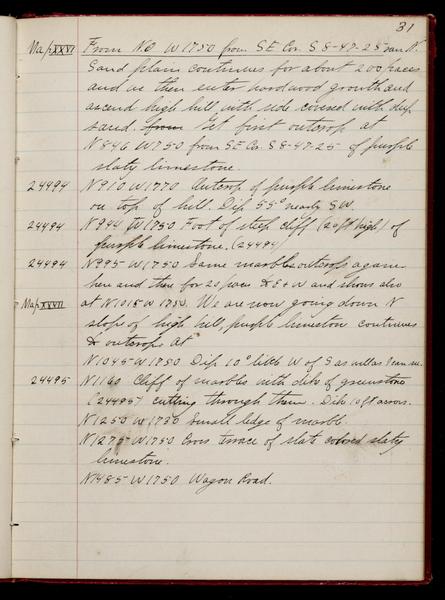 31
Map XXVI From N0 W1750 from S.E. Cor. S 8-47-25 ran N.
Sand plain continues for about 200 paces
and we then enter hardwood growth and
ascend high hill with side covered with deep
sand. from Get first outcrop at
N846 W750 from S.E. Cor. S8-47-25 of purple
slaty limestone.
24494 N910 W1770 Outcrop of purple limestone
on top of hill. Dip 55° nearly SW.
24494 N944 W1750 Foot of steep cliff (20 ft high) of
purple limestone. (24494)
24494 N995 W1750 Same marble outcrops again
here and there for 20 paces E + W and shows also
Map XXVII at N1015 W 1750. We are now going down N
slope of high hill, purple limestone continues
& outcrops at
N1045 W1750 Dip 10° little W of S as well as I can see.
24495 N1160 Cliff of marbles with dike of greenstone
(24495) cutting through them. Dike 10 ft across.
N1250 W1750 Small ledge of marble.
N1275 W1750 Cross terrace of slate colored slaty
limestone.
N1485 W1750 Wagon Road.